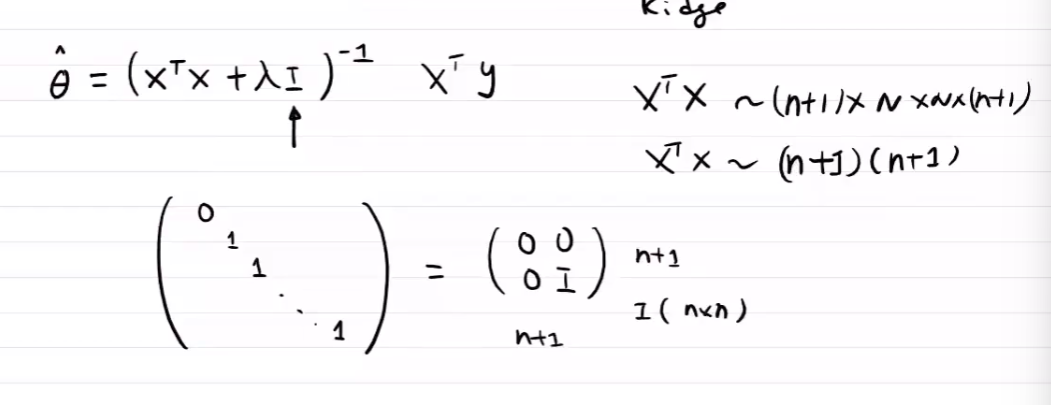 Ridge
θ̂ = (XᵀX + λI)⁻¹ Xᵀy
XᵀX ~ (n+1)×N×N×(n+1)
XᵀX ~ (n+1)(n+1)
(0 1 1 ⋱ 1) = (0 0 0 I) n+1
I(n×n)
n+1